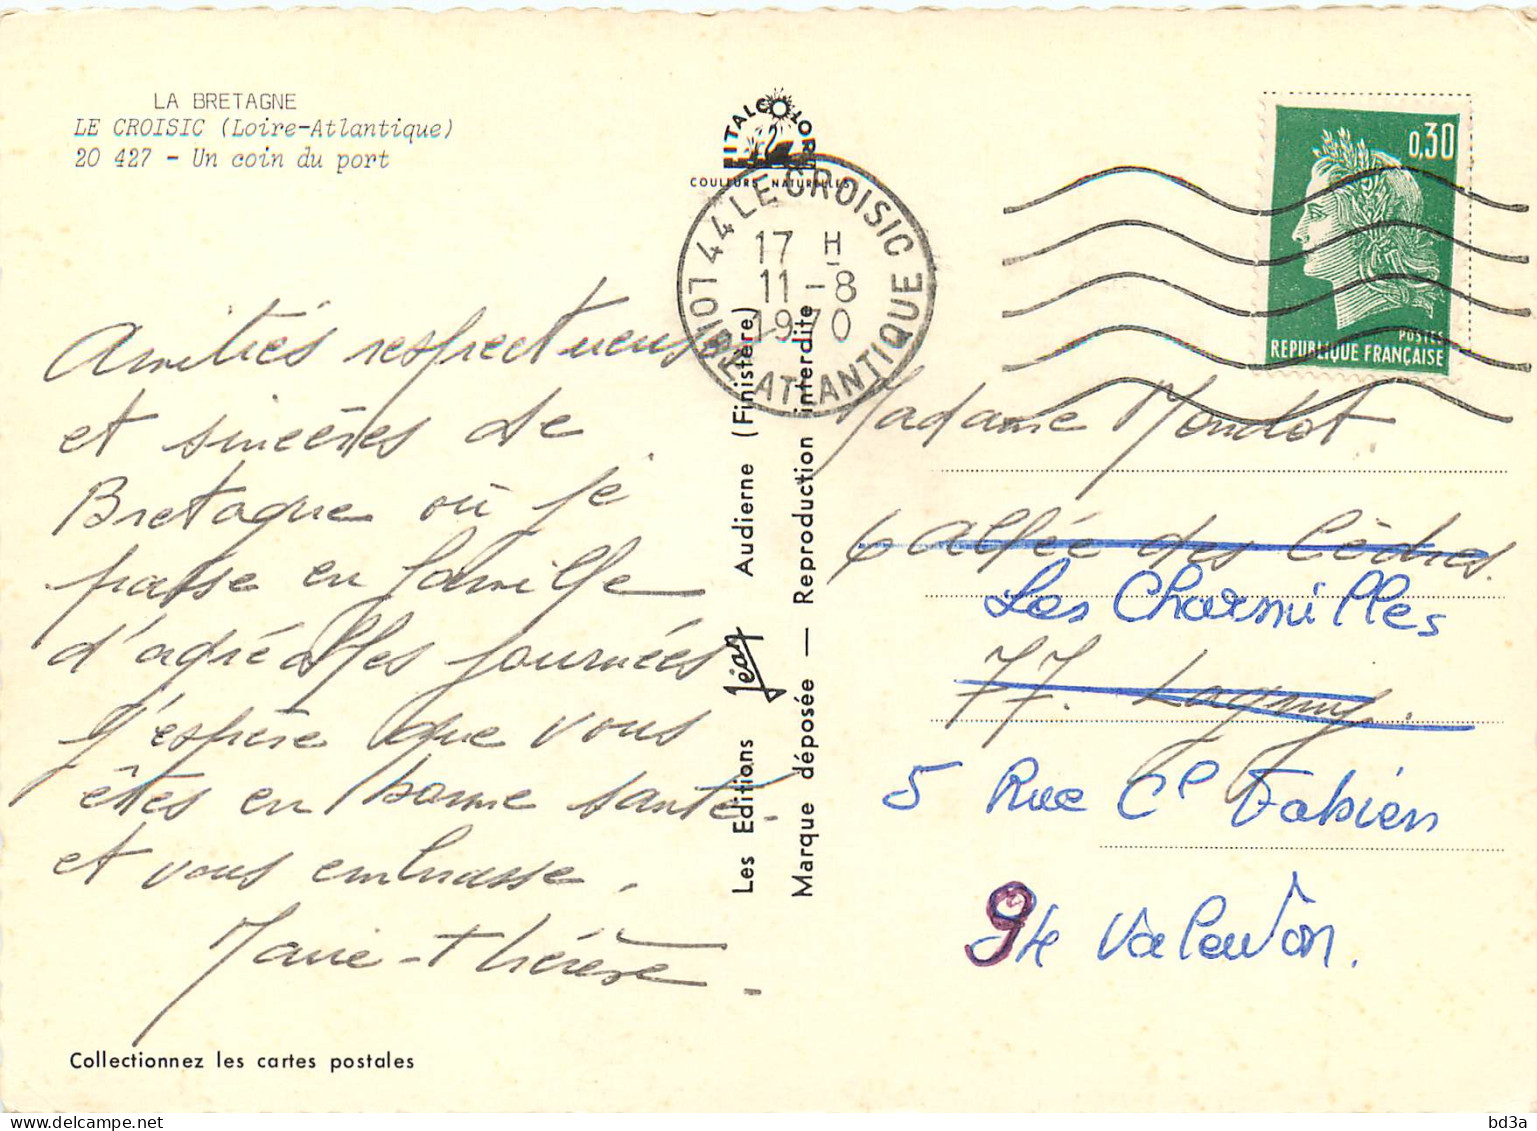 LA BRETAGNE
LE CROISIC (Loire-Atlantique)
20 427 - Un coin du port
Amitiés respectueuses
et sincères de
Bretagne où je
passe en famille
d'agréables journées
J'espère que vous
êtes en bonne santé
et vous embrasse.
Marie-thérèse
Collectionnez les cartes postales
ITALCOLOR
COULEURS NATURELLES
Les Editions Jéan Audienne (Finistère)
Marque déposée — Reproduction interdite
44 LE CROISIC
17 H
11-8
1970
LOIRE ATLANTIQUE
0,30
POSTES
REPUBLIQUE FRANÇAISE
Madame Mondot
6 allée des Cèdres.
Les Charmilles
77. Lagny.
5 Rue Cel Fabien
9
Ste
bd3a